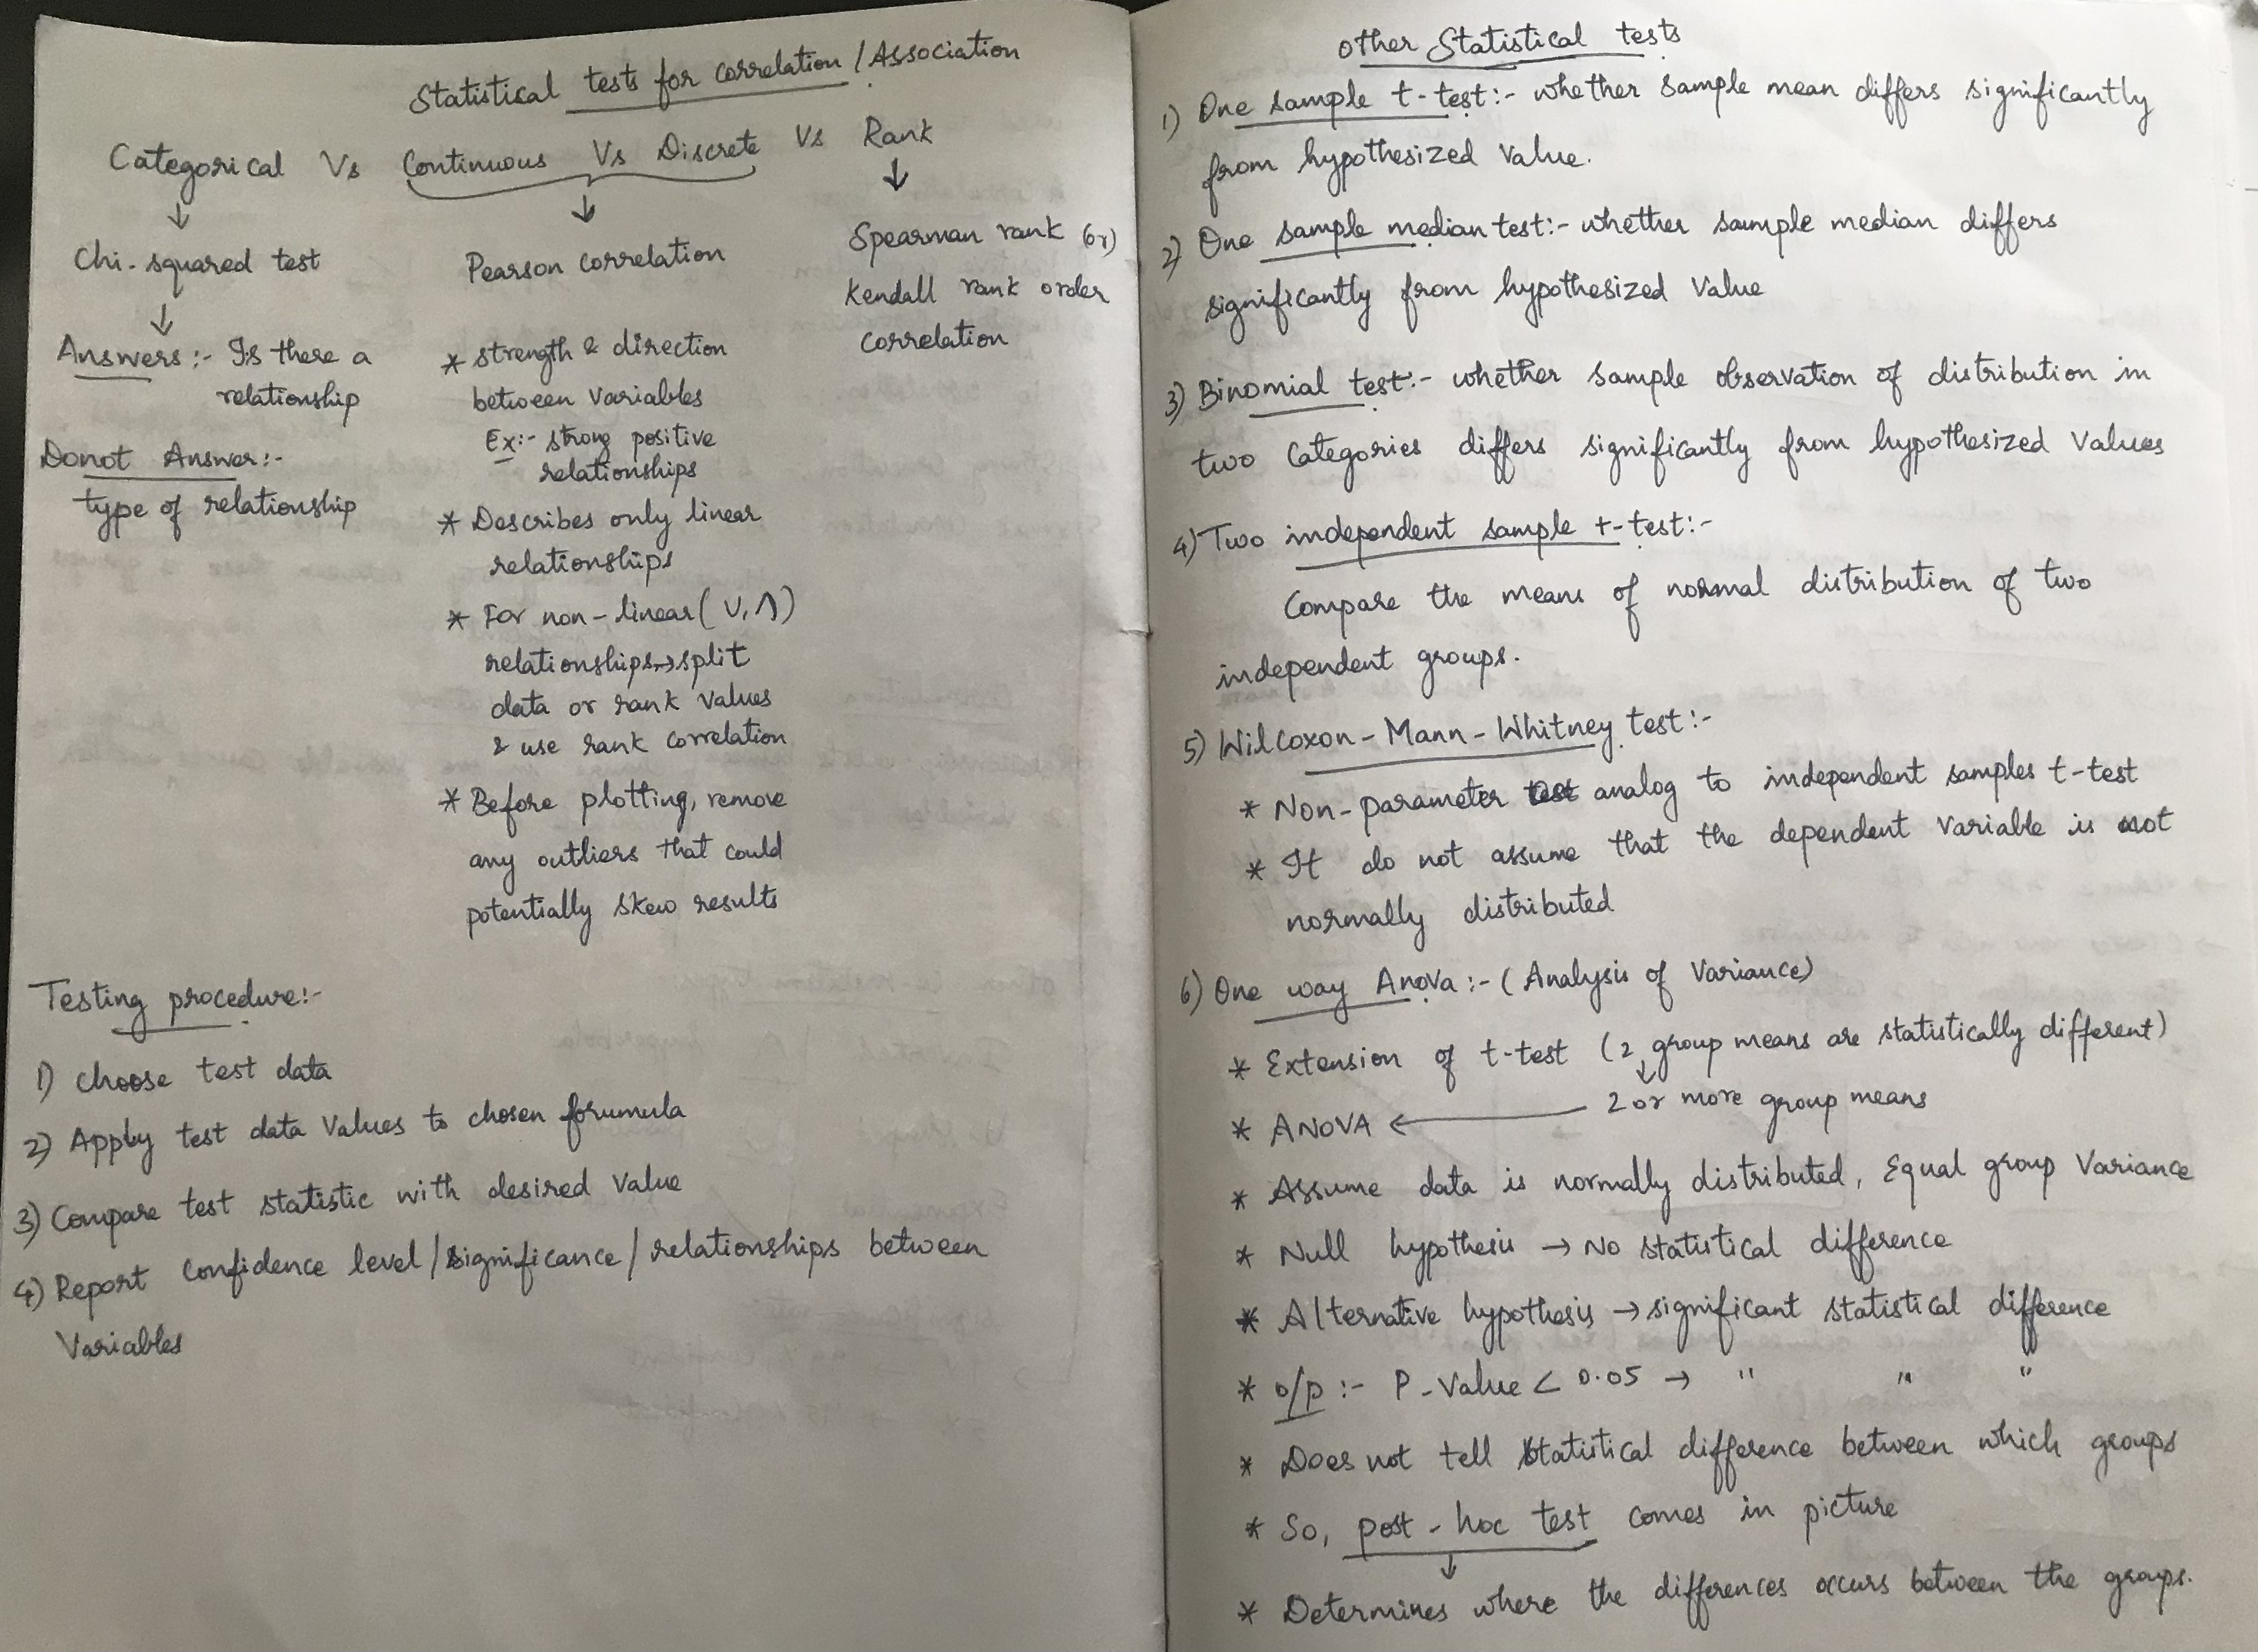 Statistical tests for correlation / Association
Categorical Vs Continuous Vs Discrete Vs Rank
↓ ↓ ↓
Chi-squared test
↓
Answers:- Is there a
relationship
Donot Answer:-
type of relationship
Pearson correlation
* strength & direction
between variables
Ex:- strong positive
relationships
* Describes only linear
relationships
* For non-linear (∪, ∩)
relationships → split
data or rank values
& use rank correlation
* Before plotting, remove
any outliers that could
potentially skew results
Spearman rank (or)
Kendall rank order
correlation
Testing procedure:-
1) choose test data
2) Apply test data values to chosen forumula
3) Compare test statistic with desired value
4) Report confidence level / significance / relationships between
Variables
Other Statistical tests
1) One sample t-test:- whether sample mean differs significantly
from hypothesized value.
2) One sample median test:- whether sample median differs
significantly from hypothesized value
3) Binomial test:- whether sample observation of distribution in
two categories differs significantly from hypothesized values
4) Two independent sample t-test:-
Compare the means of normal distribution of two
independent groups.
5) Wilcoxon-Mann-Whitney test:-
* Non-parameter analog to independent samples t-test
* It do not assume that the dependent variable is not
normally distributed
6) One way Anova:- (Analysis of Variance)
* Extension of t-test (2 group means are statistically different)
↓
* ANOVA ← 2 or more group means
* Assume data is normally distributed, Equal group Variance
* Null hypothesis → No statistical difference
* Alternative hypothesis → significant statistical difference
* o/p :- P-Value < 0.05 → " " "
* Does not tell statistical difference between which groups
* So, post-hoc test comes in picture
↓
* Determines where the differences occurs between the groups.